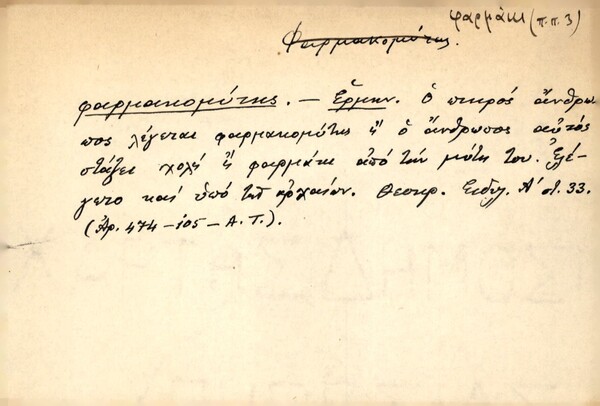 φαρμάκι (π.π. 3)
Φαρμακομύτης.
φαρμακομύτης. — Ἑρμην. Ὁ πικρός ἄνθρω
πος λέγεται φαρμακομύτης ἤ ὁ ἄνθρωπος αὐτός
στάζει χολή ἤ φαρμάκι ἀπό τήν μύτη του. Ἐλέ-
γετο καί ὑπό τῶν ἀρχαίων. Θεοκρ. Εἰδυλ. Α' στ. 33.
(Ἀρ. 474 — 105 — Α. Τ.).